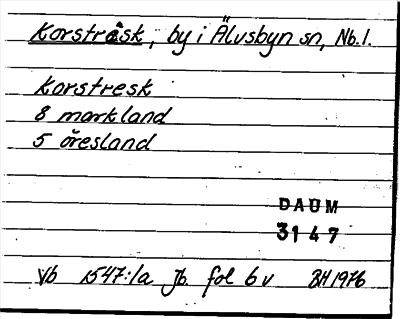 Korsträsk, by i Älvsbyn sn, Nb.l.
Korstresk
8 markland
5 öresland
DAUM
3147
Vb 1547:1a Jb. fol 6 v BH 1976